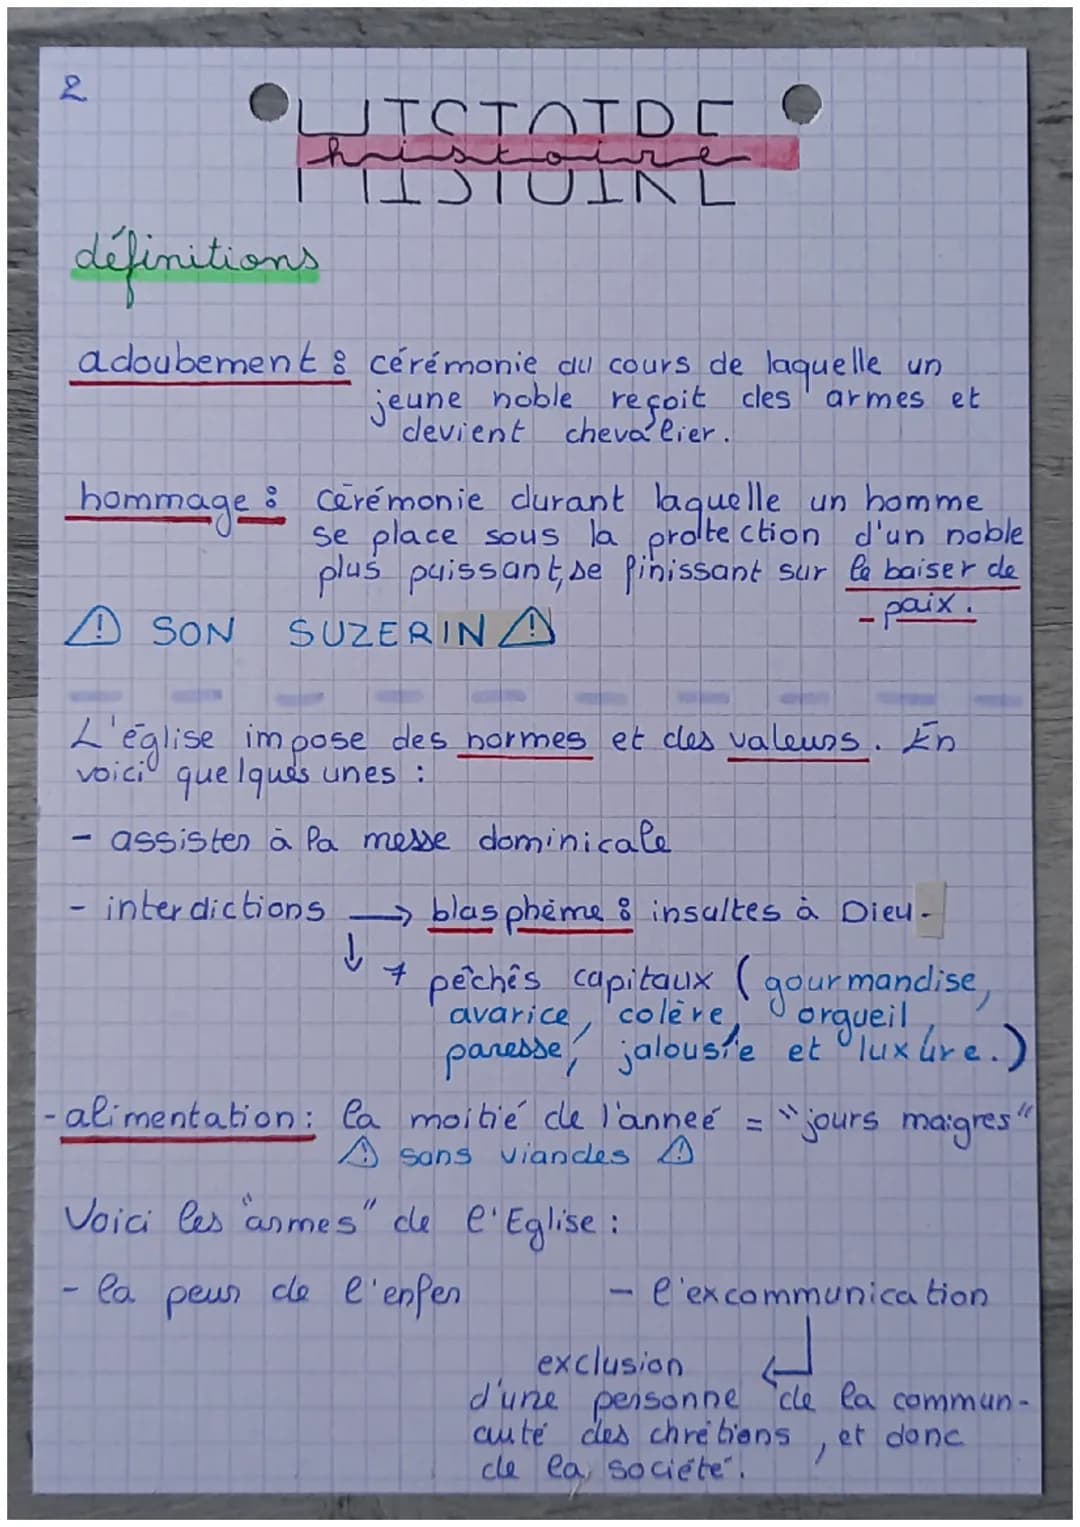 2
HISTOIRE
histoire
définitions
adoubement : cérémonie au cours de laquelle un
jeune noble reçoit des armes et
devient chevalier.
hommage : cérémonie durant laquelle un homme
se place sous la protection d'un noble
plus puissant, se finissant sur le baiser de
paix.
⚠ SON SUZERIN ⚠
L'église impose des normes et des valeurs. En
voici quelques unes :
- assister à la messe dominicale
- interdictions → blasphème : insultes à Dieu -
↓ 7 pêchés capitaux ( gourmandise,
avarice, colère, orgueil,
paresse, jalousie et luxure.)
- alimentation : la moitié de l'anneé = "jours maigres"
⚠ sans viandes ⚠
Voici les "armes" de l'Eglise :
- la peur de l'enfer - l'excommunication
exclusion
d'une personne de la commun-
auté des chrétiens, et donc
de la société.